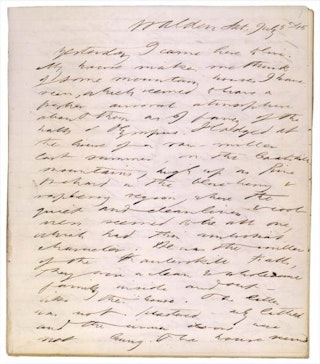 Walden Sat. July 5th 45
Yesterday I came here to live.
My house makes me think
of some mountain houses I have
seen, which seemed to have a
fresher auroral atmosphere
about them as I fancy of the
halls of Olympus. I lodged at
the house of a saw-miller
last summer, on the Caatskill
mountains, high up as Pine
Orchard in the blue-berry &
raspberry region, where the
quiet and cleanliness & cool-
ness seemed to be all one,
which had this ambrosial
character. He was the miller
of the Kaaterskill Falls,
They were a clean & wholesome
family inside and out—
like their house. The latter
was not plastered — only lathed
and the inner doors were
not hung. The house seemed